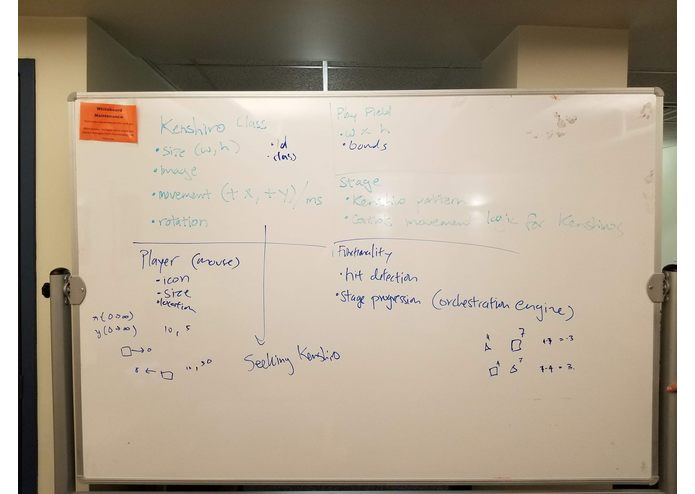 Whiteboard
Maintenance
Kenshiro Class
• size (w, h)
• id
• class
• image
• movement (± x, ± y)/ms
• rotation
Play Field
• w x h
• bounds
Stage
• Kenshiro pattern
movement logic for Kenshiros
Player (mouse)
- icon
- size
• location
x (0→∞)
y (0→∞)
10, 5
Seeking Kenshiro
Functionality
• hit detection
• stage progression (orchestration engine)
4
7
4-7 = -3
4
7
7-4 = 3